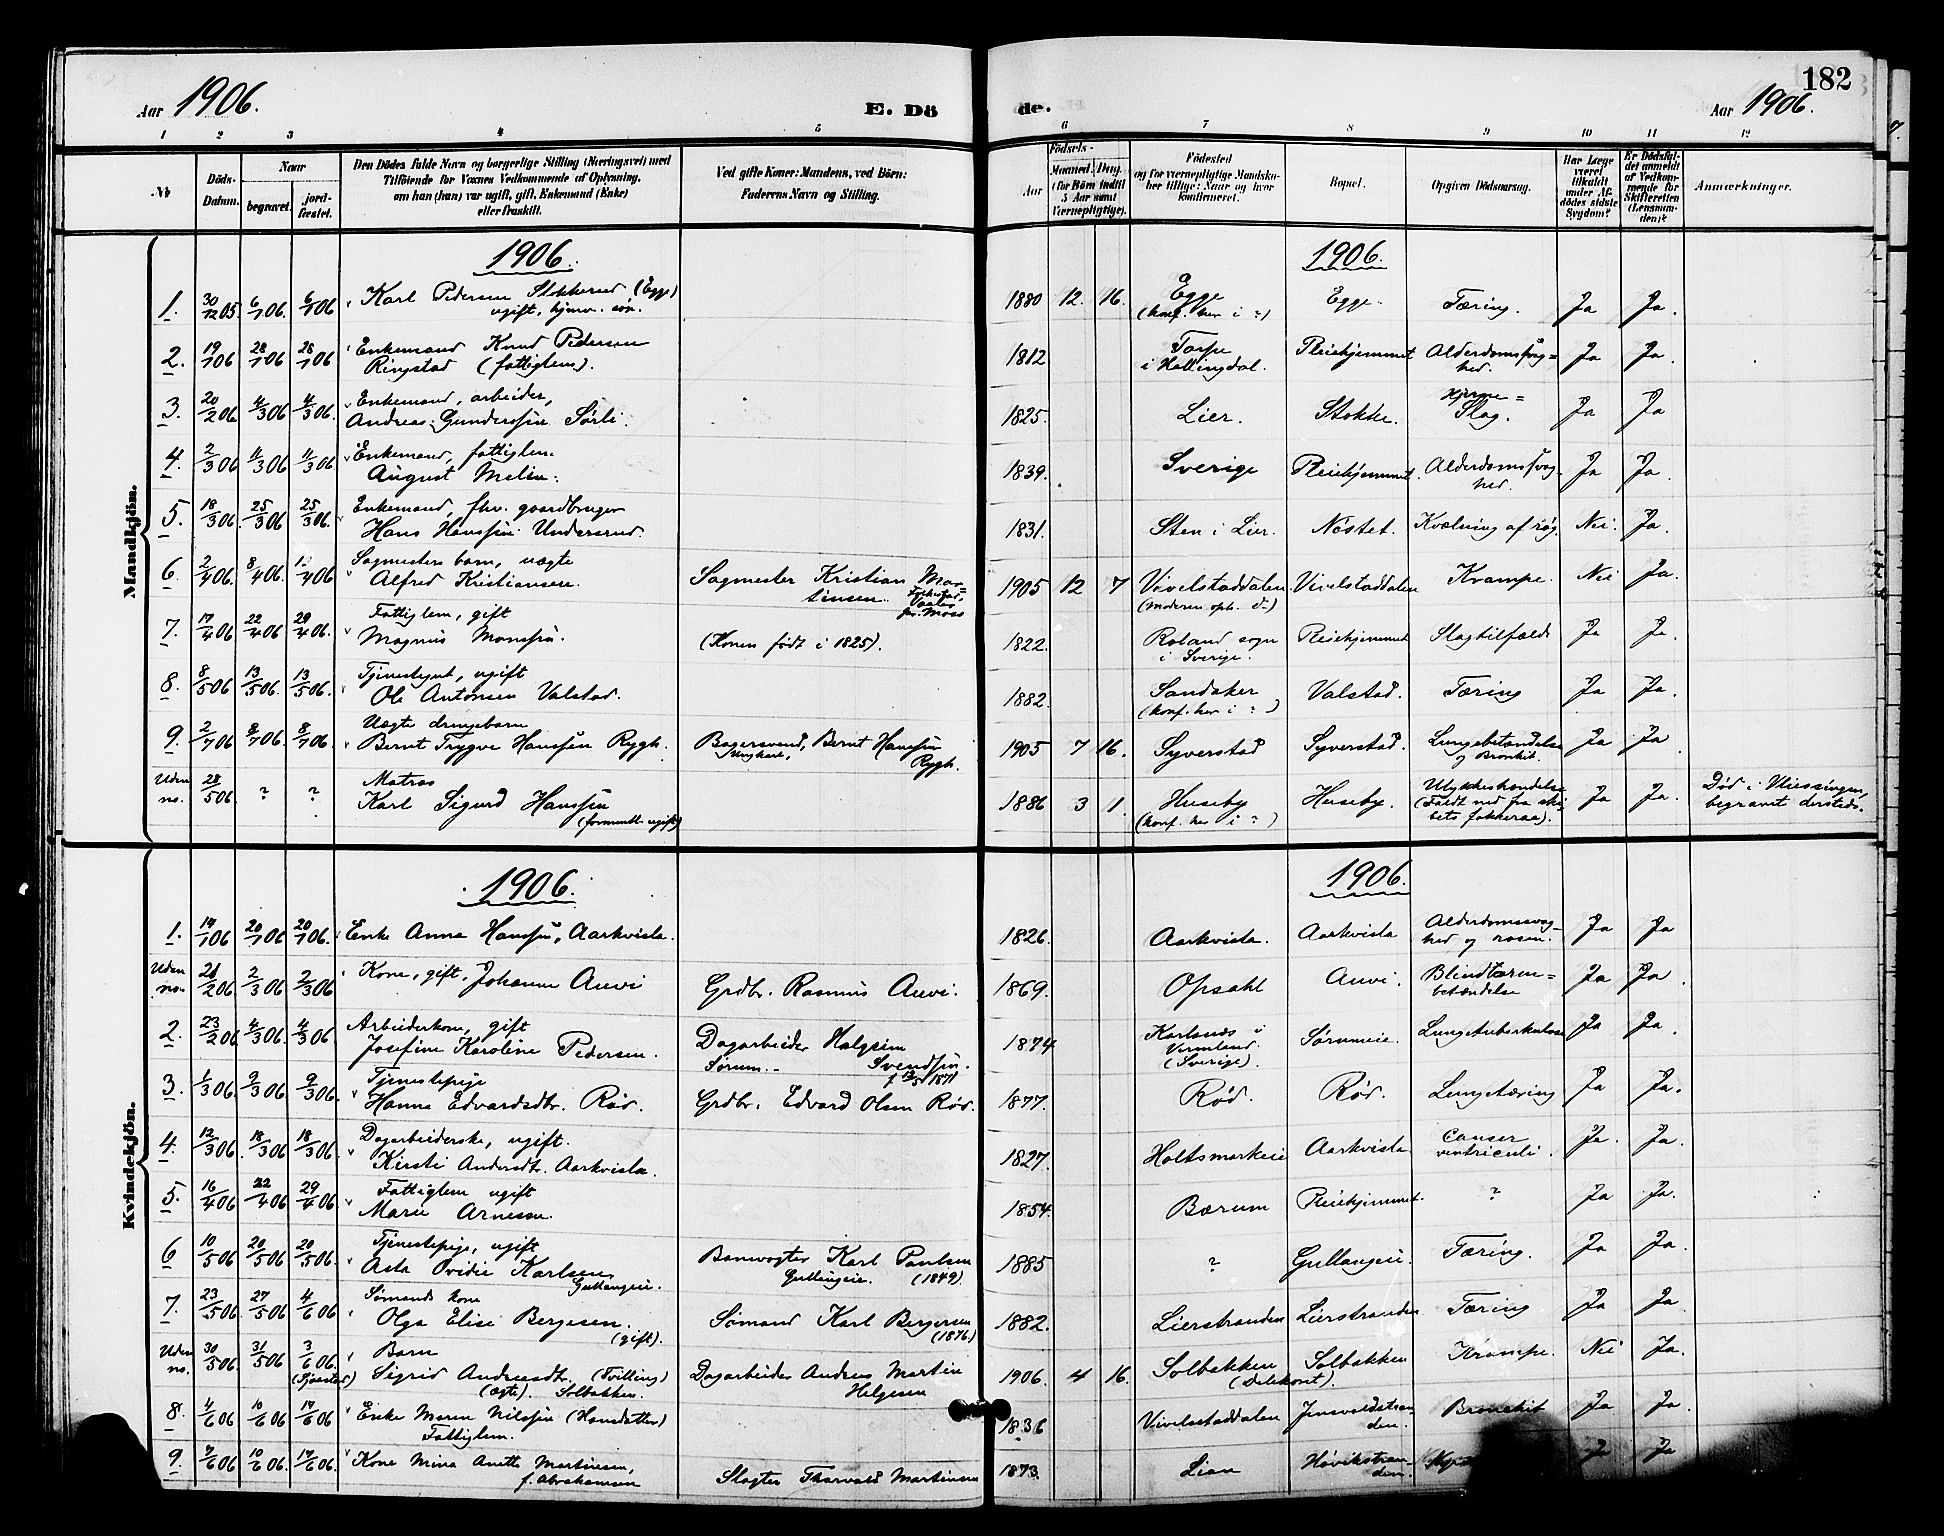 182
Aar 1906. E. Dö de. Aar 1906.
1 2 3 4 5 6 7 8 9 10 11 12
№ Döds-Datum. Naar begravet. jord-fæstet. Den Dödes fulde Navn og borgerlige Stilling (Næringsvei) med Tilföiende for Voxnes Vedkommende af Oplysning, om han (hun) var ugift, gift, Enkemand (Enke) eller fraskilt. Ved gifte Koner: Mandens, ved Börn: Faderens Navn og Stilling. Aar Födsels- Maaned. Dag. (for Börn indtil 5 Aar samt Værnepligtige). Födested og for værnepligtige Mandska-ber tillige: Naar og hvor konfirmeret. Bopæl. Opgiven Dödsaarsag. Har Læge været tilkaldt under Af-dödes sidste Sygdom? Er Dödsfal-det anmeldt af Vedkom-mende for Skifteretten (Lensman-den)? Anmærkninger.
Mandkjön.
1906. 1906.
1. 30/12 05 6/1 06. 6/1 06 Karl Pedersen Stokkerud (Egge) 1880 12. 16. Egge Egge. Tæring. Ja Ja.
ugift, hjmv. søn. (konf. her i ?)
2. 19/1 06 28/1 06 28/1 06 Enkemand Knud Pedersen 1812 Torpe Pleiehjemmet Alderdomssvag= Ja Ja.
Ringstad (fattiglem). i Hallingdal. hed.
3. 20/2 06 4/3 06 4/3 06. Enkemand, arbeider, 1825 Lier. Stokke. Hjerne= Ja Ja
Andreas Gunderssøn Sørli. Slag.
4. 2/3 06 11/3 06 11/3 06. Enkemand, fattiglem. 1839 Sverige Pleiehjemmet. Alderdomssvag Ja Ja.
August Melin. hed.
5. 18/3 06. 25/3 06 25/3 06. Enkemand, fhv. gaardbruger 1831. Sten i Lier. Nøstet. Kvælning af røg. Nei. Ja.
Hans Hanssøn Undersrud.
6. 2/4 06 8/4 06. /4 06 Sagmesters barn, uægte Sagmester Kristian Mar= 1905 12 7 Vivelstaddalen Vivelstaddalen Krampe. Nei Ja.
Alfred Kristiansen. tinsen. (Moderen oph. d~)
Moss
7. 17/4 06 22/4 06 29/4 06. Fattiglem, gift (Konen født i 1825). 1822. Roland sogn Pleiehjemmet Slagtilfælde Ja Ja.
Magnus Monssøn. i Sverige.
8. 8/5 06 13/5 06. 13/5 06. Tjenestegut, ugift 1882. Sandaker Valstad. Tæring Ja Ja.
Ole Antonsen Valstad. (konf. her i ?)
9. 2/7 06 8/7 06. 8/7 06. Uægte drengebarn Bagersvend, Bernt Hanssøn 1905 7 16. Syverstad Syverstad. Lungebetændelse Ja Ja
Bernt Trygve Hanssøn Rygh. Ungkarl, Rygh. og Bronkit.
Uden no. 28/5 06. ? ? Matros 1886 3 1. Huseby Huseby. Ulykkeshændelse Ja Ja. Død i Vlissingen,
Karl Sigurd Hanssøn (konf. her i ?) (Faldt ned fra ski= begravet dersteds.
(formentl. ugift) bets fokkeraa).
Kvindekjön.
1906. 1906.
1. 14/1 06 20/1 06 20/1 06. Enke Anna Hanssøn, Aarkvisla. 1826. Aarkvisla. Aarkvisla Alderdomssvag= Ja Ja
hed og rosen.
Uden no. 21/2 06 2/3 06 2/3 06 Kone, gift, Johanne Auvi Grdbr. Rasmus Auvi. 1869. Opsahl Auvi. Blindtarm= Ja Ja
betændelse
2. 23/2 06 4/3 06. 4/3 06 Arbeiderkone, gift Dagarbeider Halgrim 1874 Karlsnæs i Sørumeie. Lungetuberkulose Ja Ja.
Josefine Karoline Pedersen. Sørum.. Svendsøn. Vermland.
f. 13/5 1871 (Sverige).
3. 1/3 06. 9/3 06. 9/3 06. Tjenestepige Grdbr. Edvard Olsen Rød. 1877. Rød. Rød. Lungetæring Ja Ja.
Hanna Edvardsdtr. Rød.
4. 12/3 06. 18/3 06 18/3 06. Dagarbeiderske, ugift. 1827. Holtsmarkeie Aarkvisla Canser Ja. Ja.
Kirsti Andersdt. Aarkvisla. ventriculi.
5. 16/4 06. 22/4 06 29/4 06. Fattiglem ugift 1854. Bærum Pleiehjemmet. ? Ja Ja.
Marie Arnesen.
6 10/5 06. 20/5 06 20/5 06. Tjenestepige, ugift Banevogter Karl Paulsen 1885 ? Gullaugeie. Tæring. Ja Ja.
Asta Ovidie Karlsen Gullaugeie. (1849)
Gullaugeie.
7. 23/5 06. 27/5 06. 4/6 06. Sømands kone Sømand Karl Bergersen 1882. Lierstranden Lierstranden Tæring Ja Ja.
Olga Elise Bergesen. (gift). (1876)
Uden no. 30/5 06 31/5 06 3/6 06. Barn Dagarbeider Andreas Martin 1906. 4 16. Solbakken Solbakken Krampe. Nei Ja.
Sigrid Andreasdtr. (Tvilling) Helgesen
(ægte). Solbakken.
8. 4/6 06 10/6 06. 17/6 06 Enke Maren Nilssøn (Hansdatter) 1836 Vivelstaddalen Jensvoldstran Bronchit Ja Ja.
Fattiglem. den.
9. 7/6 06 10/6 06. 17/6 06. Kone Mina Anette Martinsen, Slagter Thorvald Martinsen 1873. Lian Høvikstran Ja Ja
f. Abrahamsen den.